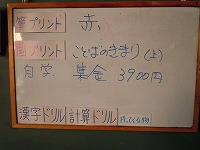 算プリント 赤
国プリント ことばのきまり(上)
自学 集金 3900円
漢字ドリル 計算ドリル 持ってくる物